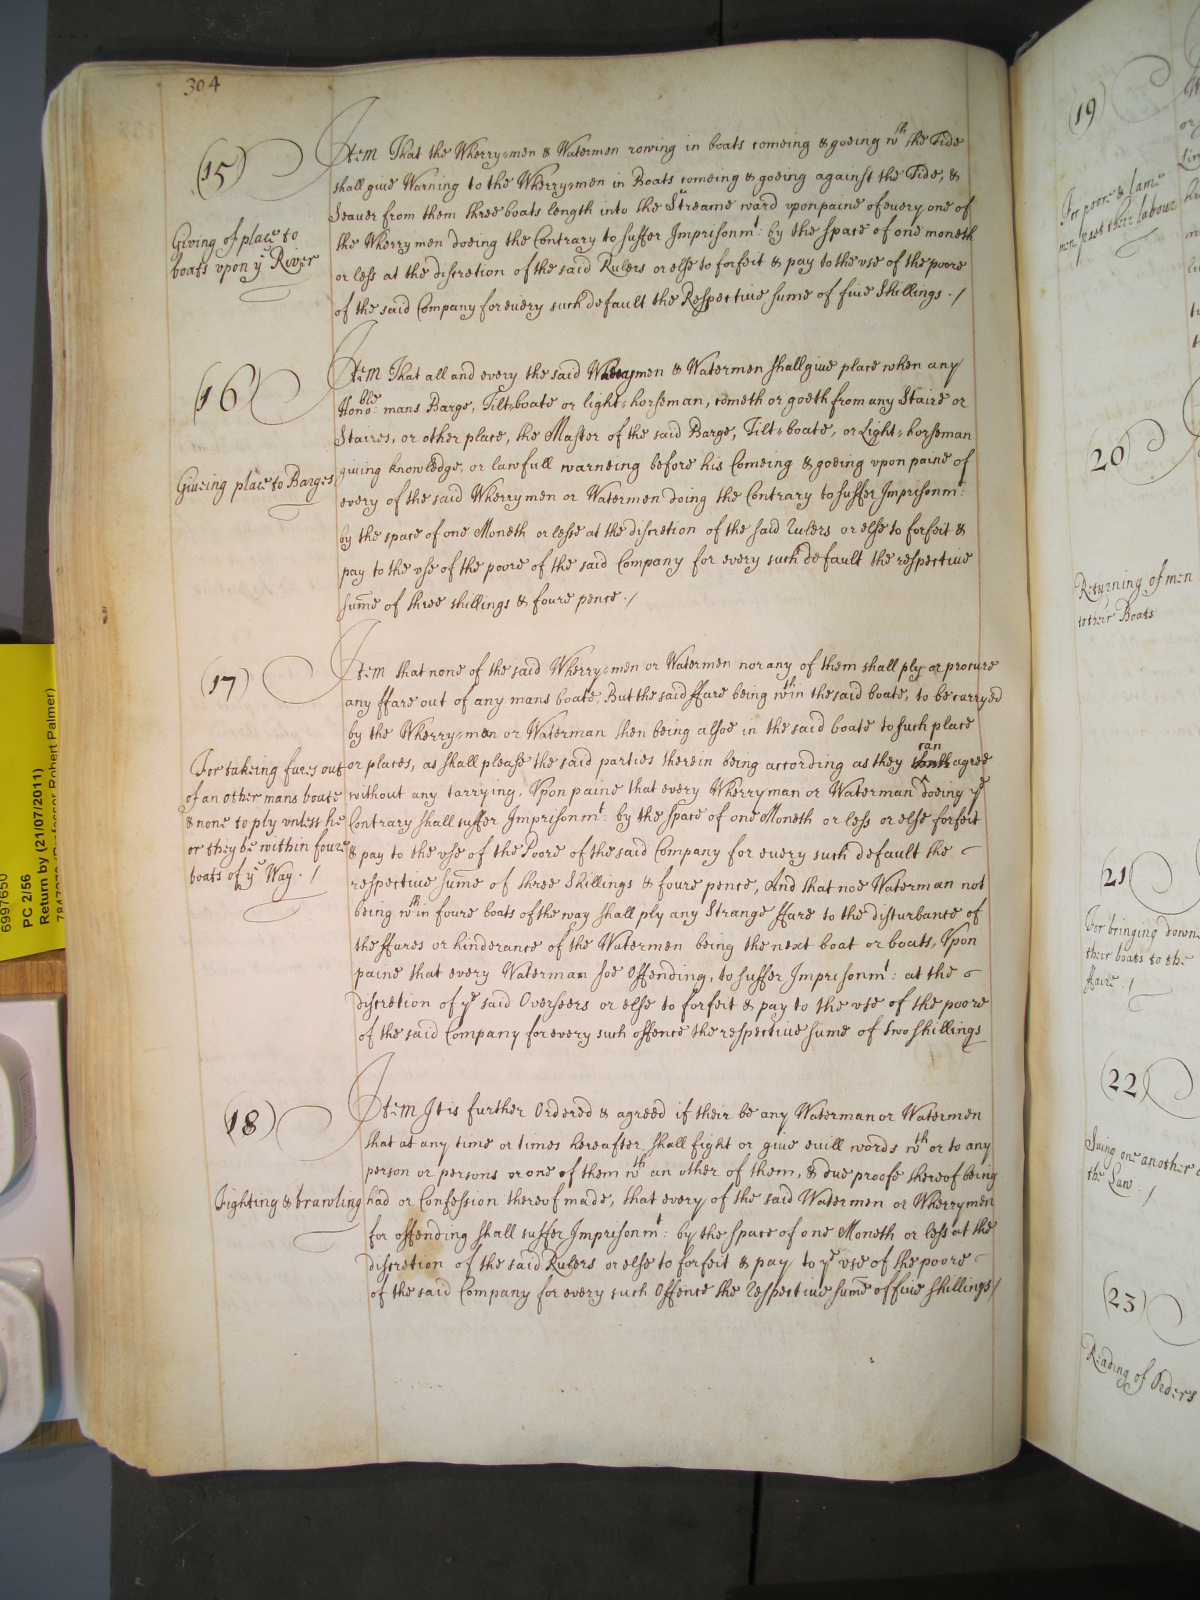 304
(15)
Giving of place to
boats vpon ye River
Item That the Wherry=men & Watermen rowing in boats comeing & goeing wth the Tide
shall give Warning to the Wherry=men in Boats comeing & goeing against the Tide, &
Seauer from them three boats length into the Streame ward vpon paine of euery one of
the Wherrymen doeing the Contrary to suffer Imprisonmt: by the space of one moneth
or less at the discretion of the said Rulers or else to forfeit & pay to the vse of the poore
of the said Company for every such default the Respectiue sume of fiue Shillings ./
(16)
Giveing place to Barges
Item That all and every the said Wherrymen & Watermen shall giue place when any
Honoble: mans Barge, Tilt=boate or light=horseman, cometh or goeth from any Staire or
Staires, or other place, the Master of the said Barge, Tilt=boate, or Light=horseman
giuing knowledge, or lawfull warneing before his Comeing & goeing vpon paine of
every of the said Wherrymen or Watermen doing the Contrary to suffer Imprisonmt:
by the space of one Moneth or lesse at the discretion of the said Rulers or else to forfeit &
pay to the vse of the poore of the said Company for every such default the respectiue
sume of three shillings & foure pence ./
(17)
For takeing fares out
of an other mans boate
& none to ply vnless he
or they be within foure
boats of ye Way ./
Item that none of the said Wherry=men or Watermen nor any of them shall ply or procure
any ffare out of any mans boate, But the said ffare being wthin the said boate, to be carryed
by the Wherry=men or Waterman then being alsoe in the said boate to such place
or places, as shall please the said parties therein being according as they can agree
without any tarrying, Vpon paine that every Wherryman or Waterman doeing ye
Contrary shall suffer Imprisonmt: by the space of one Moneth or less or else forfeit
& pay to the vse of the Poore of the said Company for euery such default the
respectiue sume of three Shillings & foure pence, And that noe Waterman not
being wthin foure boats of the way shall ply any Strange ffare to the disturbance of
the ffares or hinderance of the Watermen being the next boat or boats, Vpon
paine that every Waterman soe Offending, to suffer Imprisonmt: at the
discretion of ye said Overseers or else to forfeit & pay to the vse of the poore
of the said Company for every such offence the respectiue sume of two shillings
(18)
Fighting & brawling
Item It is further Ordered & agreed if their be any Waterman or Watermen
that at any time or times hereafter shall fight or giue euill words wth or to any
person or persons or one of them wth an other of them, & due proofe thereof being
had or Confession thereof made, that every of the said Watermen or Wherrymen
for offending shall suffer Imprisonmt: by the space of one Moneth or less at the
discretion of the said Rulers or else to forfeit & pay to ye vse of the poore
of the said Company for every such Offence the Respectiue sume of fiue shillings/
(19)
For poore & lame
men past their labour
20)
Returning of men
to their Boats
(21)
For bringing down
their boats to the
ffaire ./
(22)
Suing one another
the Law ./
(23)
Reading of Orders
6997650
PC 2/56
Return by (21/07/2011)
(Professor Robert Palmer)